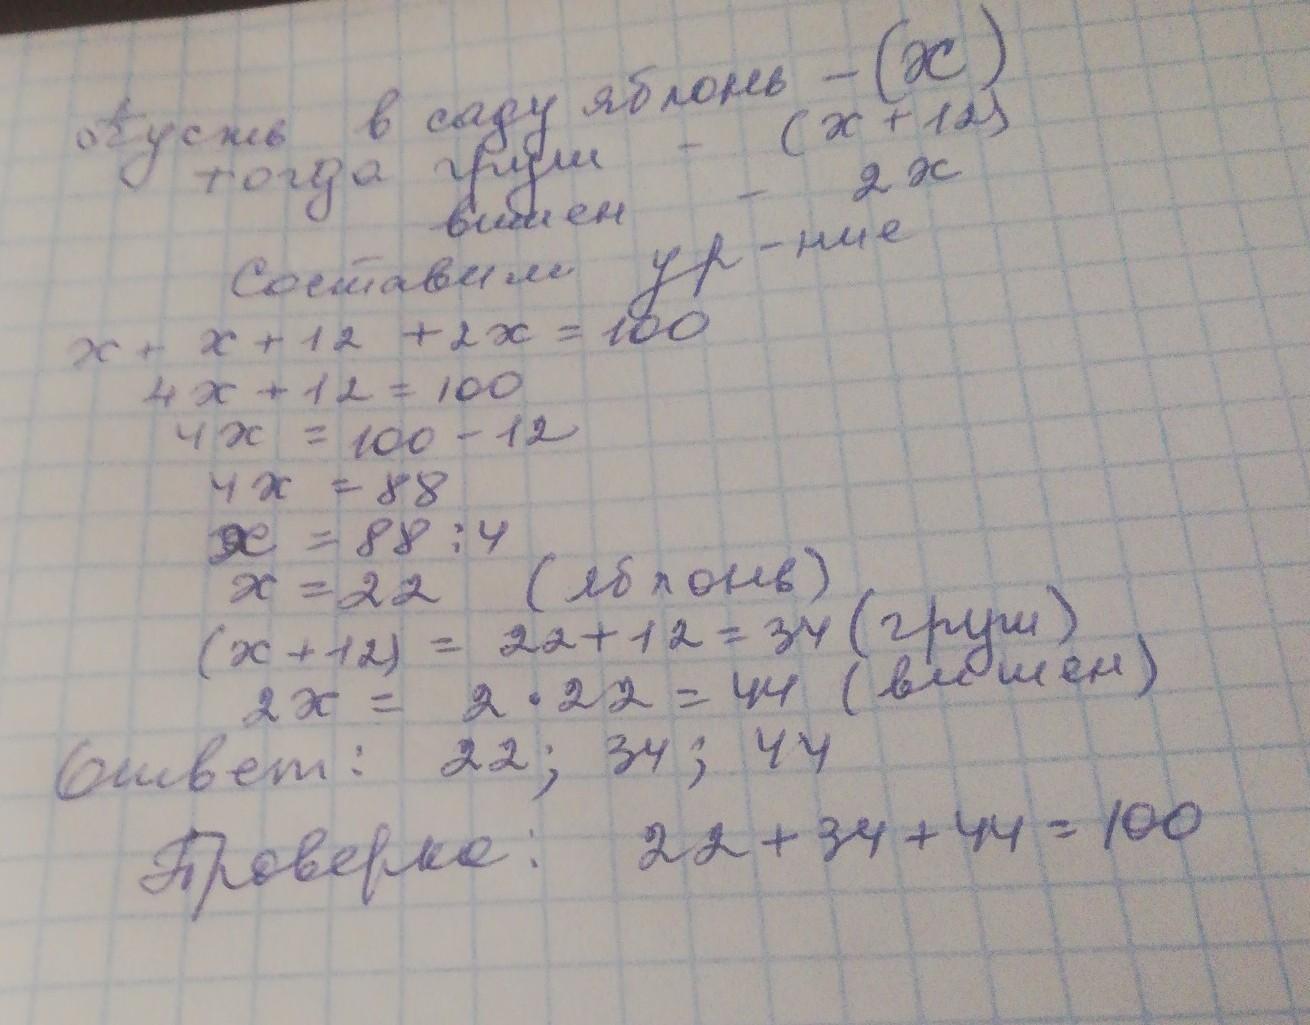 Пусть в саду яблонь - (x)
тогда груш - (x+12)
вишен - 2x
Составим ур-ние
x + x + 12 + 2x = 100
4x + 12 = 100
4x = 100 - 12
4x = 88
x = 88 : 4
x = 22 (яблонь)
(x+12) = 22 + 12 = 34 (груш)
2x = 2 · 22 = 44 (вишен)
Ответ: 22; 34; 44
Проверка: 22 + 34 + 44 = 100